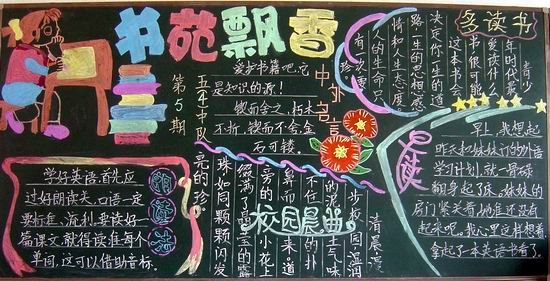 书苑飘香
第5期
五4中队
爱护书籍吧,它
是知识的源!
锲而舍之,朽木
不折,锲而不舍,金
石可镂。
中外名言
多读书
青少
年时代最
爱读什么
书很可能
这本书会
决定你一生的道
路一生的思想感
情和人生态度
人的生命只
有次
早读
早上,我想起
昨天和妹妹订的外语
学习计划,就一骨碌
翻身起了床。妹妹的
房门紧关着,她准还没有
起来呢。我心里这样想着,
拿起了一本英语书看了。
校园晨曲
清晨漫
步校园,湿润
的泥土气味
不住的扑
鼻而来。道
旁的小花上
缀满了晶莹的露
珠如同颗颗闪发
亮的珍
学好英语,首先应
过好朗读关,口语一定
要标准、流利。要读好一
篇课文就得读准每个
单词,这可以借助音标。